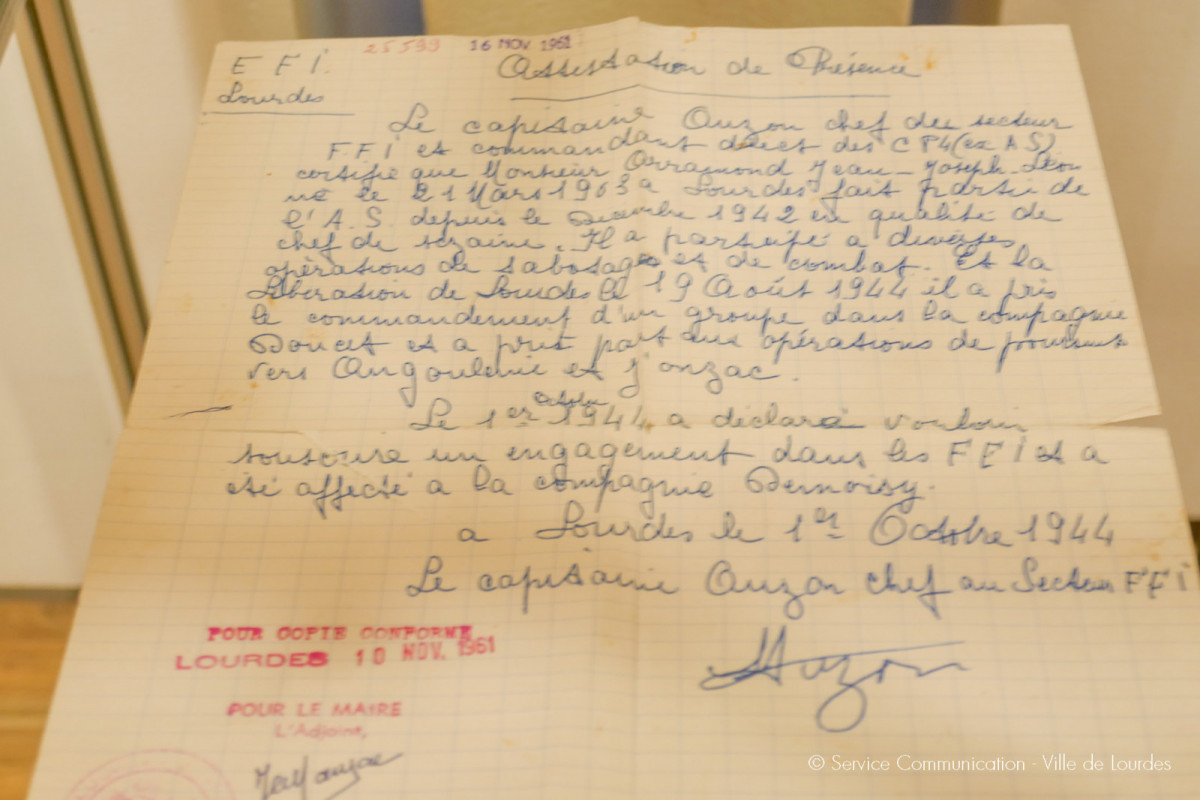 F F I. 25599 16 NOV. 1961 Attestation de Présence
Lourdes
Le capitaine Ouzon chef du secteur
F.F.I et commandant direct des C P4 (ex A S)
certifie que Monsieur Arramond Jean-Joseph-Léon
né le 21 Mars 1903 a Lourdes fait partie de
l'A.S. depuis le Décembre 1942 en qualité de
chef de sizaine. Il a participé a diverses
opérations de sabotages et de combat. Et la
Libération de Lourdes le 19 Août 1944 il a pris
le commandement d'un groupe dans la compagnie
Doucet et a pris part aux opérations de poursuit
vers Angoulème et Jonzac.
Le 1er Octobre 1944 a déclaré vouloir
souscrire un engagement dans les F F I et a
été affecté a la compagnie Demoisy.
a Lourdes le 1er Octobre 1944
Le capitaine Ouzon chef au Secteur F F I
Ouzon
POUR COPIE CONFORME
LOURDES 10 NOV. 1961
POUR LE MAIRE
L'Adjoint,
© Service Communication - Ville de Lourdes